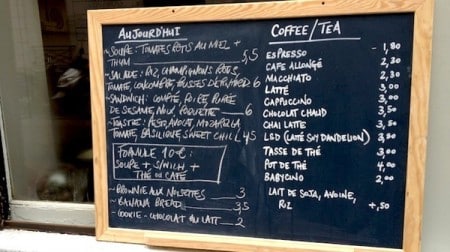 AUJOURD'HUI
~ SOUPE: TOMATES ROTIS AU MIEL +
THYM 5,5
~ SALADE: RIZ, CHAMPIGNONS ROTIS,
TOMATE, CONCOMBRE, 6
~ SANDWICH: COMTÉ, POIRE, PUREE
DE SESAME NOIR, ROQUETTE 6
~ TOASTIE: PESTO, AVOCAT, MOZARELLA
TOMATE, BASILIQUE, SWEET CHILL 4,5
FORMULE 10€:
SOUPE + S/WICH +
THÉ ou CAFÉ
~ BROWNIE AUX NOISETTES 3
~ BANANA BREAD 3,5
~ COOKIE - CHOCOLAT AU LAIT 2
COFFEE/TEA
ESPRESSO - 1,80
CAFE ALLONGÉ 2,30
MACCHIATO 2,30
LATTÉ 3,00
CAPPUCCINO 3,00
CHOCOLAT CHAUD 3,50
CHAI LATTE 3,50
LSD (LATTÉ SOY DANDELION) 3,50
TASSE DE THÉ 3,00
POT DE THÉ 4,00
BABYCINO 2,00
LAIT DE SOJA, AVOINE,
RIZ +,50